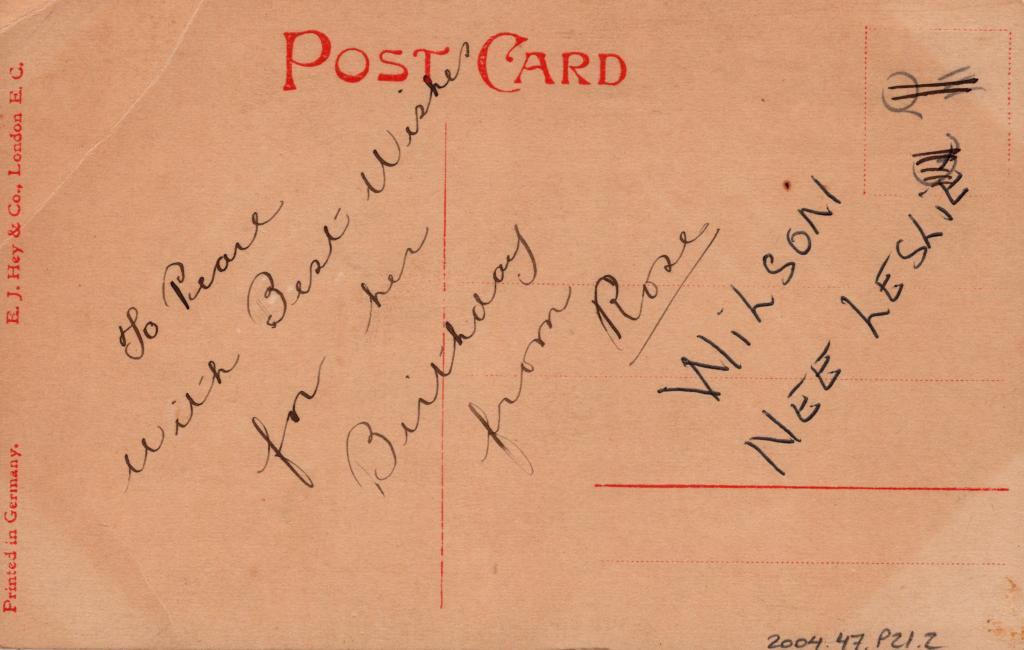 POST CARD
E. J. Hey & Co., London E. C.
Printed in Germany.
To Pearl
With Best Wishes
for her
Birthday
from
Rose
WILSON
NEE LESLIE
2004.47.P21.2